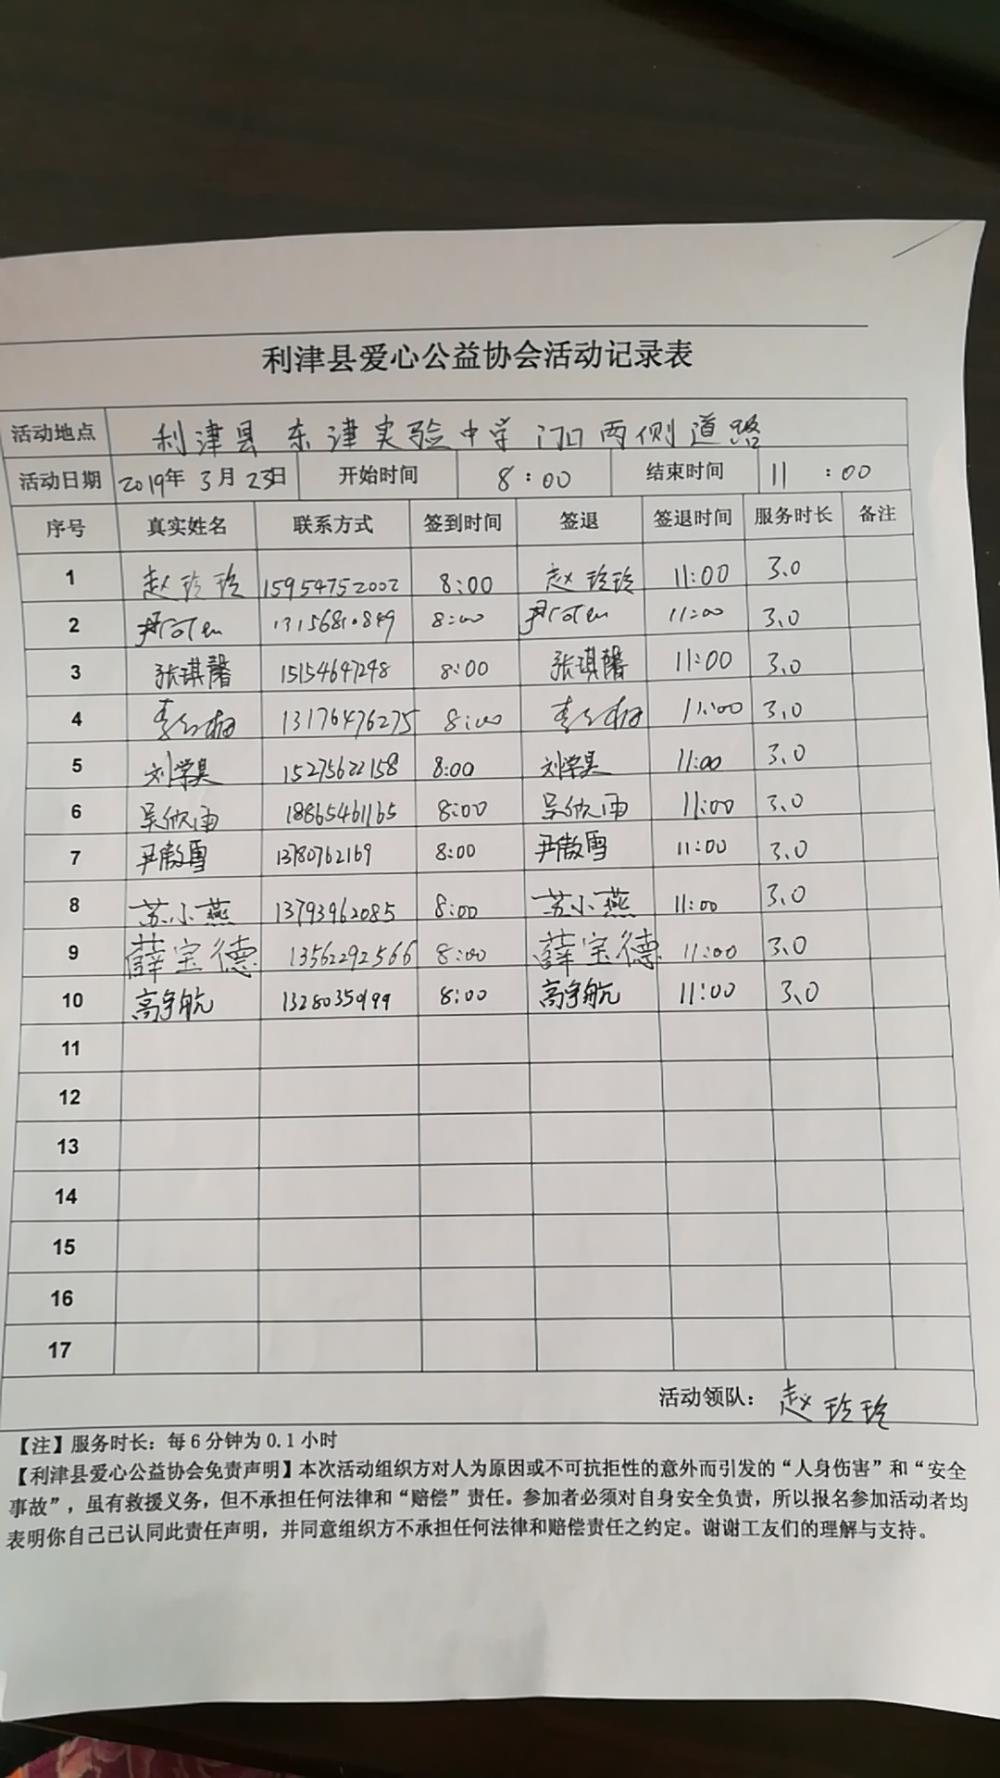 利津县爱心公益协会活动记录表
活动地点 利津县东津实验中学门口两侧道路
活动日期 2019年3月23日 开始时间 8:00 结束时间 11:00
序号 真实姓名 联系方式 签到时间 签退 签退时间 服务时长 备注
1 赵玲玲 15954752002 8:00 赵玲玲 11:00 3.0
2 尹 13156810849 8:00 尹 11:00 3.0
3 张琪馨 15154647298 8:00 张琪馨 11:00 3.0
4 李 13176476275 8:00 李 11:00 3.0
5 刘学昊 15275622158 8:00 刘学昊 11:00 3.0
6 吴欣雨 18865461165 8:00 吴欣雨 11:00 3.0
7 尹傲雪 13780762169 8:00 尹傲雪 11:00 3.0
8 苏小燕 13793962085 8:00 苏小燕 11:00 3.0
9 薛宝德 13562292566 8:00 薛宝德 11:00 3.0
10 高宇航 13280350199 8:00 高宇航 11:00 3.0
11
12
13
14
15
16
17
活动领队： 赵玲玲
【注】服务时长：每6分钟为0.1小时
【利津县爱心公益协会免责声明】本次活动组织方对人为原因或不可抗拒性的意外而引发的“人身伤害”和“安全
事故”，虽有救援义务，但不承担任何法律和“赔偿”责任。参加者必须对自身安全负责，所以报名参加活动者均
表明你自己已认同此责任声明，并同意组织方不承担任何法律和赔偿责任之约定。谢谢工友们的理解与支持。